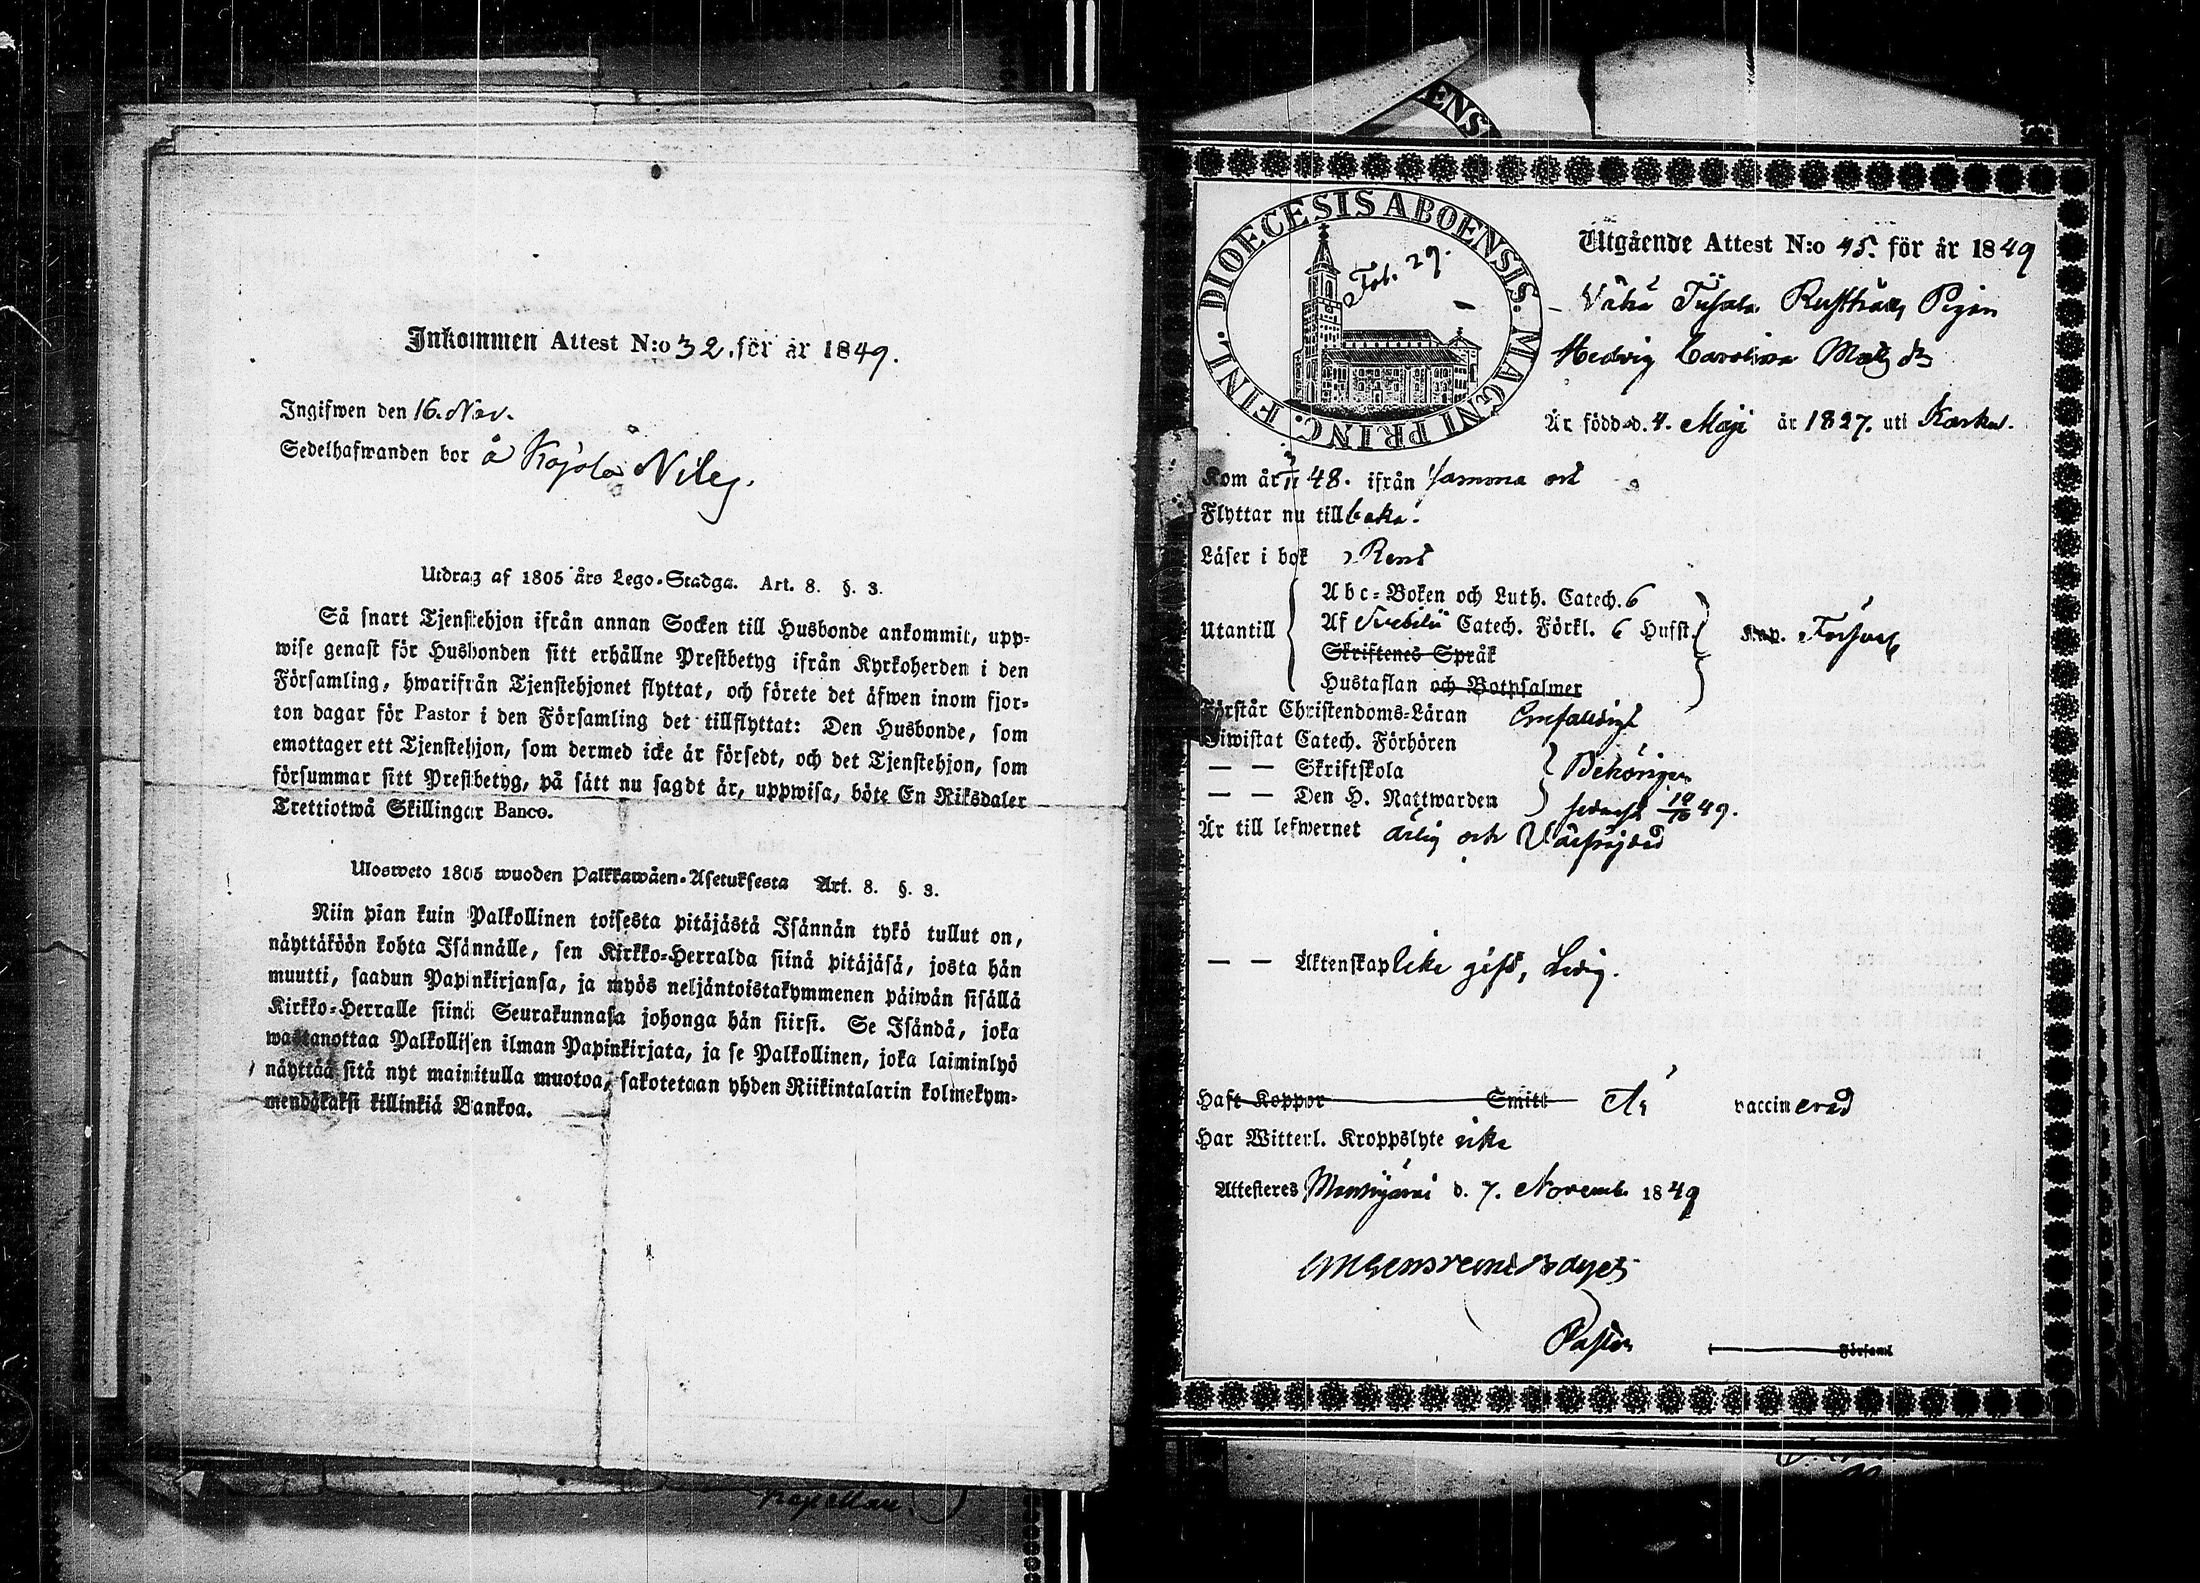 Inkommen Attest N:o 32. för år 1849.
Ingifwen den 16. Nov.
Sedelhafwanden bor å Kojola Nileg.
Utdrag af 1805 års Lego-Stadga. Art. 8. §. 3.
Så snart Tjenstehjon ifrån annan Socken till Husbonde ankommit, upp-
wise genast för Husbonden sitt erhållne Prestbetyg ifrån Kyrkoherden i den
Församling, hwarifrån Tjenstehjonet flyttat, och förete det äfwen inom fjor-
ton dagar för Pastor i den Församling det tillflyttat: Den Husbonde, som
emottager ett Tjenstehjon, som dermed icke är försedt, och det Tjenstehjon, som
försummar sitt Prestbetyg, på sätt nu sagdt är, uppwisa, böte En Riksdaler
Trettiotwå Skillingar Banco.
Ulosweto 1805 wuoden Palkkawäen-Asetuksesta Art. 8. §. 3.
Niin pian kuin Palkollinen toisesta pitäjästä Isännän tykö tullut on,
näyttäköön kohta Isännälle, sen Kirkko-Herralda siinä pitäjäsä, josta hän
muutti, saadun Papinkirjansa, ja myös neljäntoistakymmenen päiwän sisällä
Kirkko-Herralle siinä Seurakunnasa johonga hän siirsi. Se Isändä, joka
wastanottaa Palkollisen ilman Papinkirjata, ja se Palkollinen, joka laiminlyö
näyttää sitä nyt mainitulla muotoa, sakotetaan yhden Riikintalarin kolmekym-
mendäkaksi killinkiä Bankoa.
Kapellan.
ENS
DIOECESIS ABOENSIS. MAGNI PRINC. FINL.
Fol. 29.
Utgående Attest N:o 45. för år 1849
Vähä Rusthålls Pigan
Hedvig Carolina Matsdr
Är född d. 4. Maji år 1827. uti Karkus.
Kom år 48. ifrån samma ort
Flyttar nu tillbaka.
Läser i bok Rent
Utantill
Abc-Boken och Luth. Catech. 6
Af Svebilii Catech. Förkl. 6 Hufst.
Skriftenes Språk
Hustaflan och Botpsalmer
Kap. Försvarl.
Förstår Christendoms-Läran Enfaldigt
Biwistat Catech. Förhören
— — Skriftskola Behörigen
— — Den H. Nattwarden senast 49.
Är till lefwernet ärlig och Välfrejdad
— — Äktenskap icke gift, Ledig.
Haft Koppor Smitt Är vaccinerad
Har Witterl. Kroppslyte icke
Attesteras Mouhijärvi d. 7. Novemb. 1849
Pastor Församl